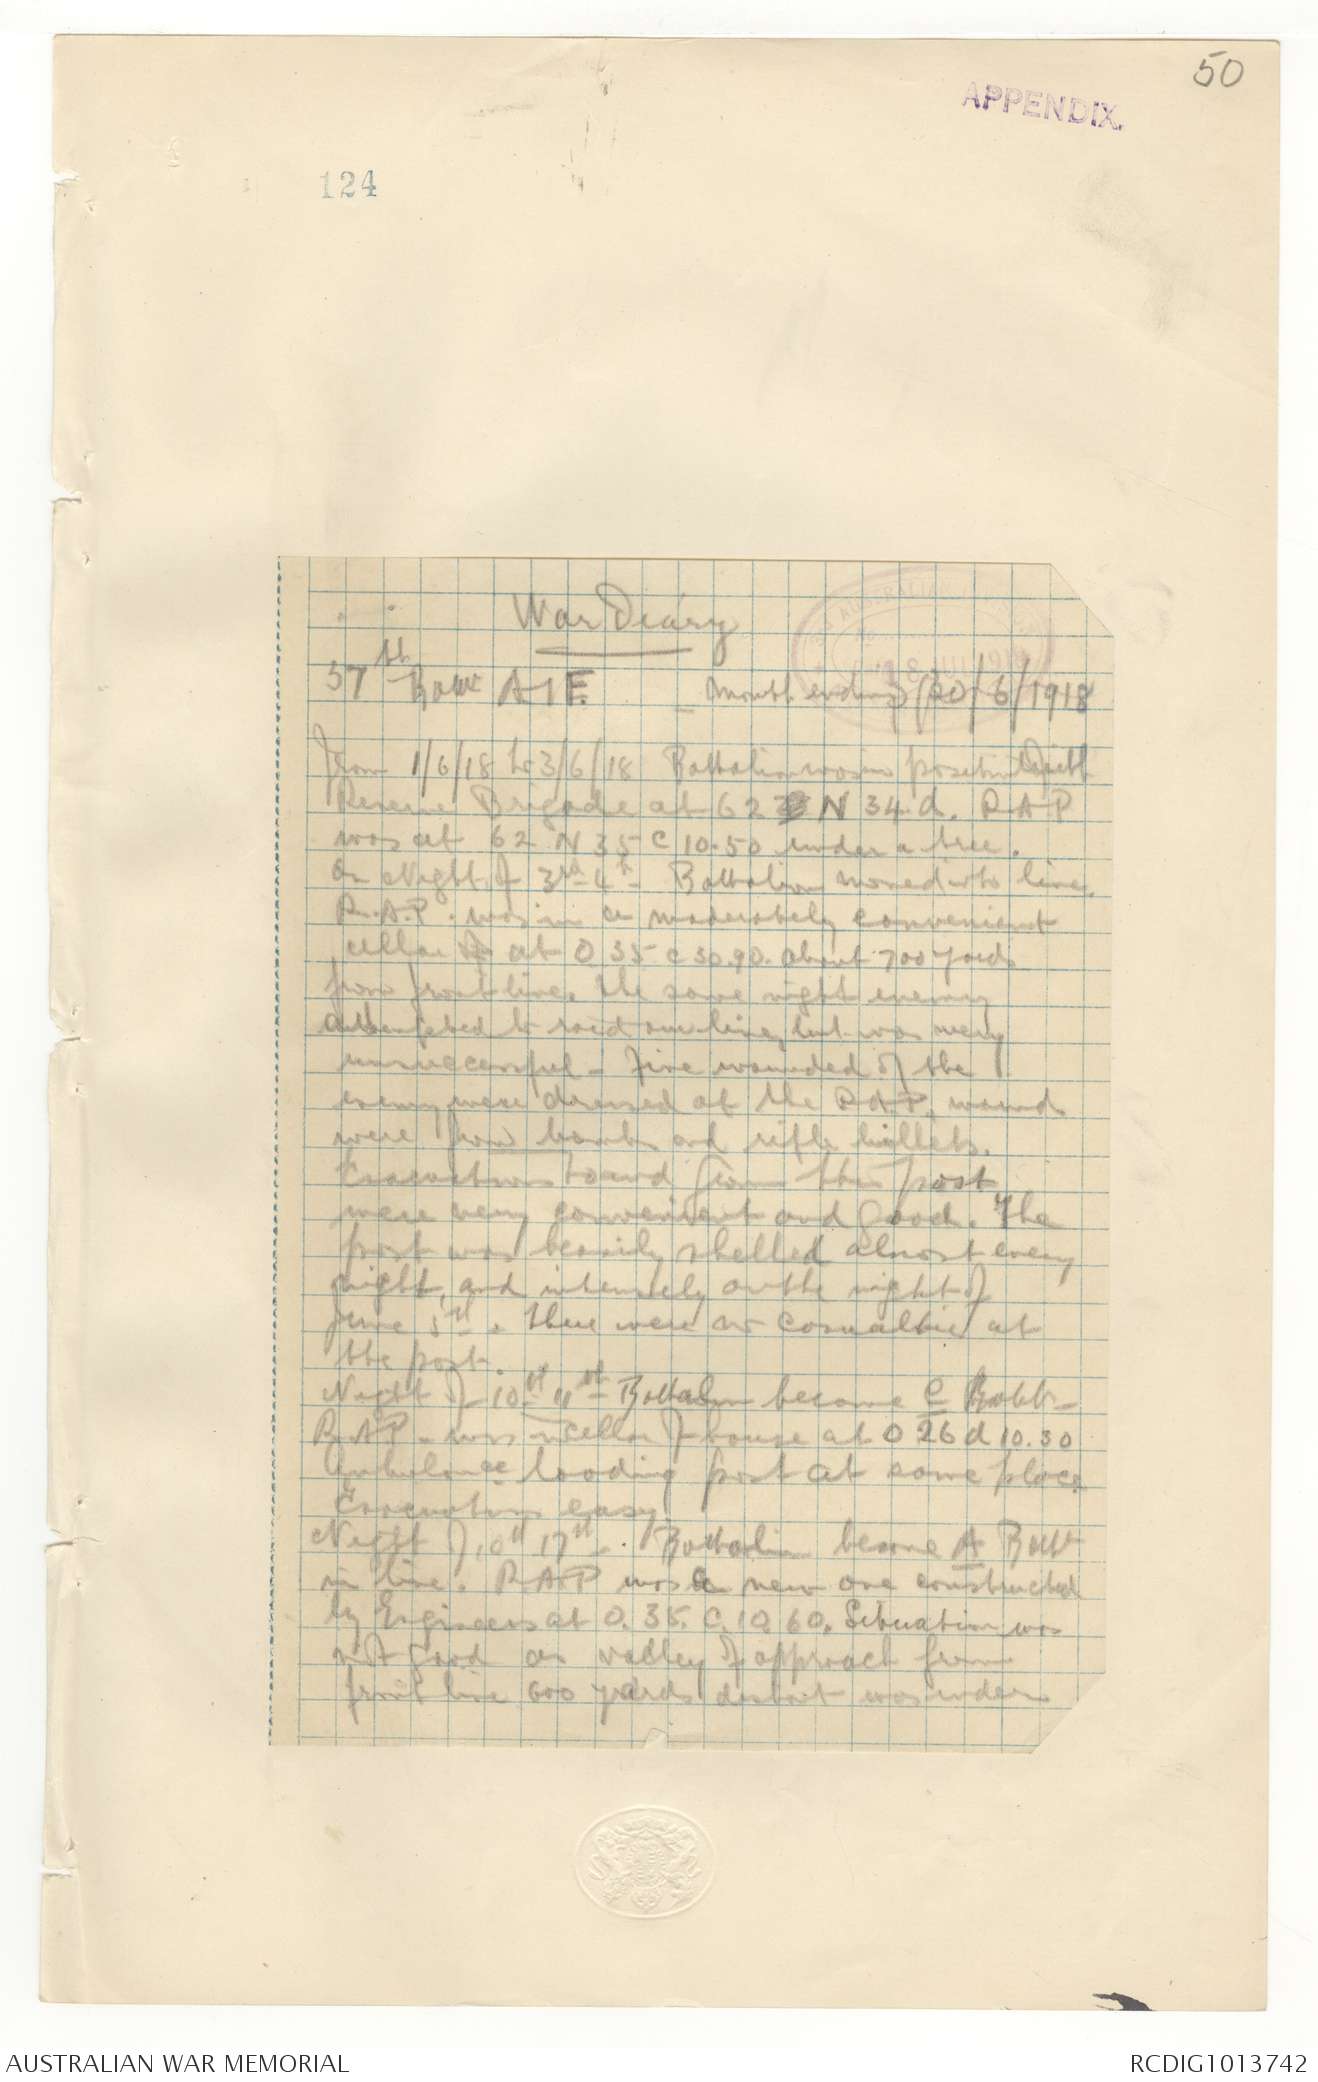 50
APPENDIX.
124
War Diary
57th Battn A I F. Month ending 30/6/1918
From 1/6/18 to 3/6/18 Battalion was in position with
Reserve Brigade at 62 N 34 d. R A P
was at 62 N 35 c 10.50 under a tree.
On Night of 3rd-4th Battalion moved into line.
R.A.P. was in a moderately convenient
cellar at O 35 c 30.90. about 700 yards
from front line. The same night enemy
attempted to raid our line, but was very
unsuccessful - Five wounded of the
enemy were dressed at the R A P, wounds
were from bombs and rifle bullets.
Evacuations to and from this post
were very convenient and good. The
post was heavily shelled almost every
night, and intensely on the night of
June 5th. There were no casualties at
the post.
Night of 10th 11th Battalion became C Battn
R.A.P. was in cellar of house at O 26 d 10.30
Ambulance loading post at same place
Evacuation easy.
Night of 17th. Battalion became A Battn
in line. R.A.P was a new one constructed
by Engineers at O. 35. C. 10. 60. Situation was
not good as valley of approach from
front line 600 yards distant was under
AUSTRALIAN WAR MEMORIAL
RCDIG1013742